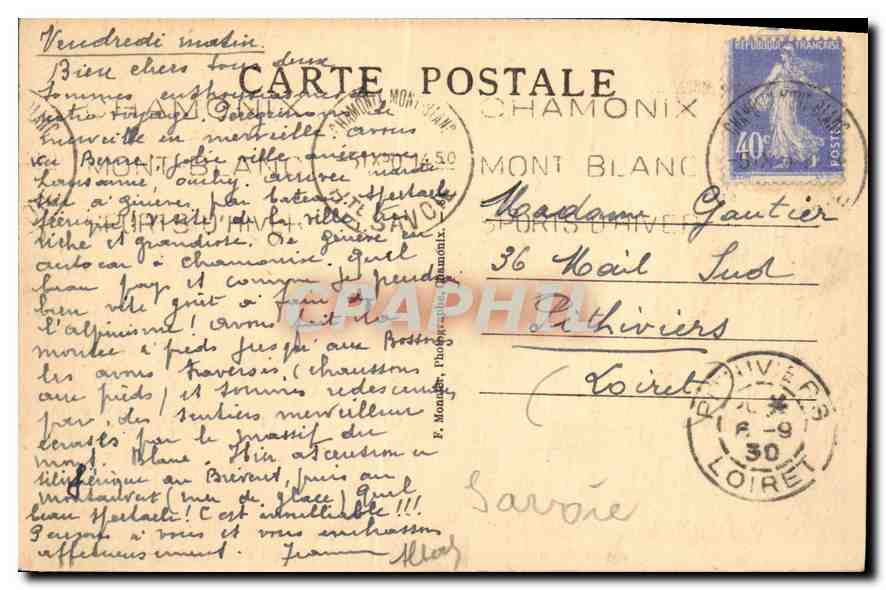 Vendredi matin.
Bien chers tous deux
CARTE POSTALE
Sommes enthousiasmés
notre voyage. Pérégrinons de
merveille en merveille. avons
vu Berne jolie ville ancienne
Lausanne, ouchy. arrivée mardi
soir à Genève par bateau. Spectacle
féerique! visité de la ville
riche et grandiose. De Genève en
autocar à Chamonix. Quel
beau pays et comme je prendrai
bien vite goût à faire de
l'alpinisme! avons fait la
montée à pieds jusqu'aux Bossons
les avons traversés (chaussons
aux pieds) et sommes redescendus
par des sentiers merveilleux
écrasés par le massif du
mont Blanc. Hier ascension en
téléphérique au Brévent, puis au
Montanvert (mer de glace) Quel
beau spectacle! C'est inoubliable!!!
Pensons à vous et vous embrassons
affectueusement. Jeanne
CHAMONIX
MONT BLANC
SPORTS D'HIVER
CHAMONIX MONT-BLANC
HTE SAVOIE
F. Monnier, Photographe, Chamonix.
CHAMONIX
MONT BLANC
SPORTS D'HIVER
REPUBLIQUE FRANÇAISE
40c
POSTES
CHAMONIX MONT-BLANC
Madame Gautier
36 Mail Sud
Pithiviers
Loiret
PITHIVIERS
6 -9
30
LOIRET
Savoie
CPAPHIL